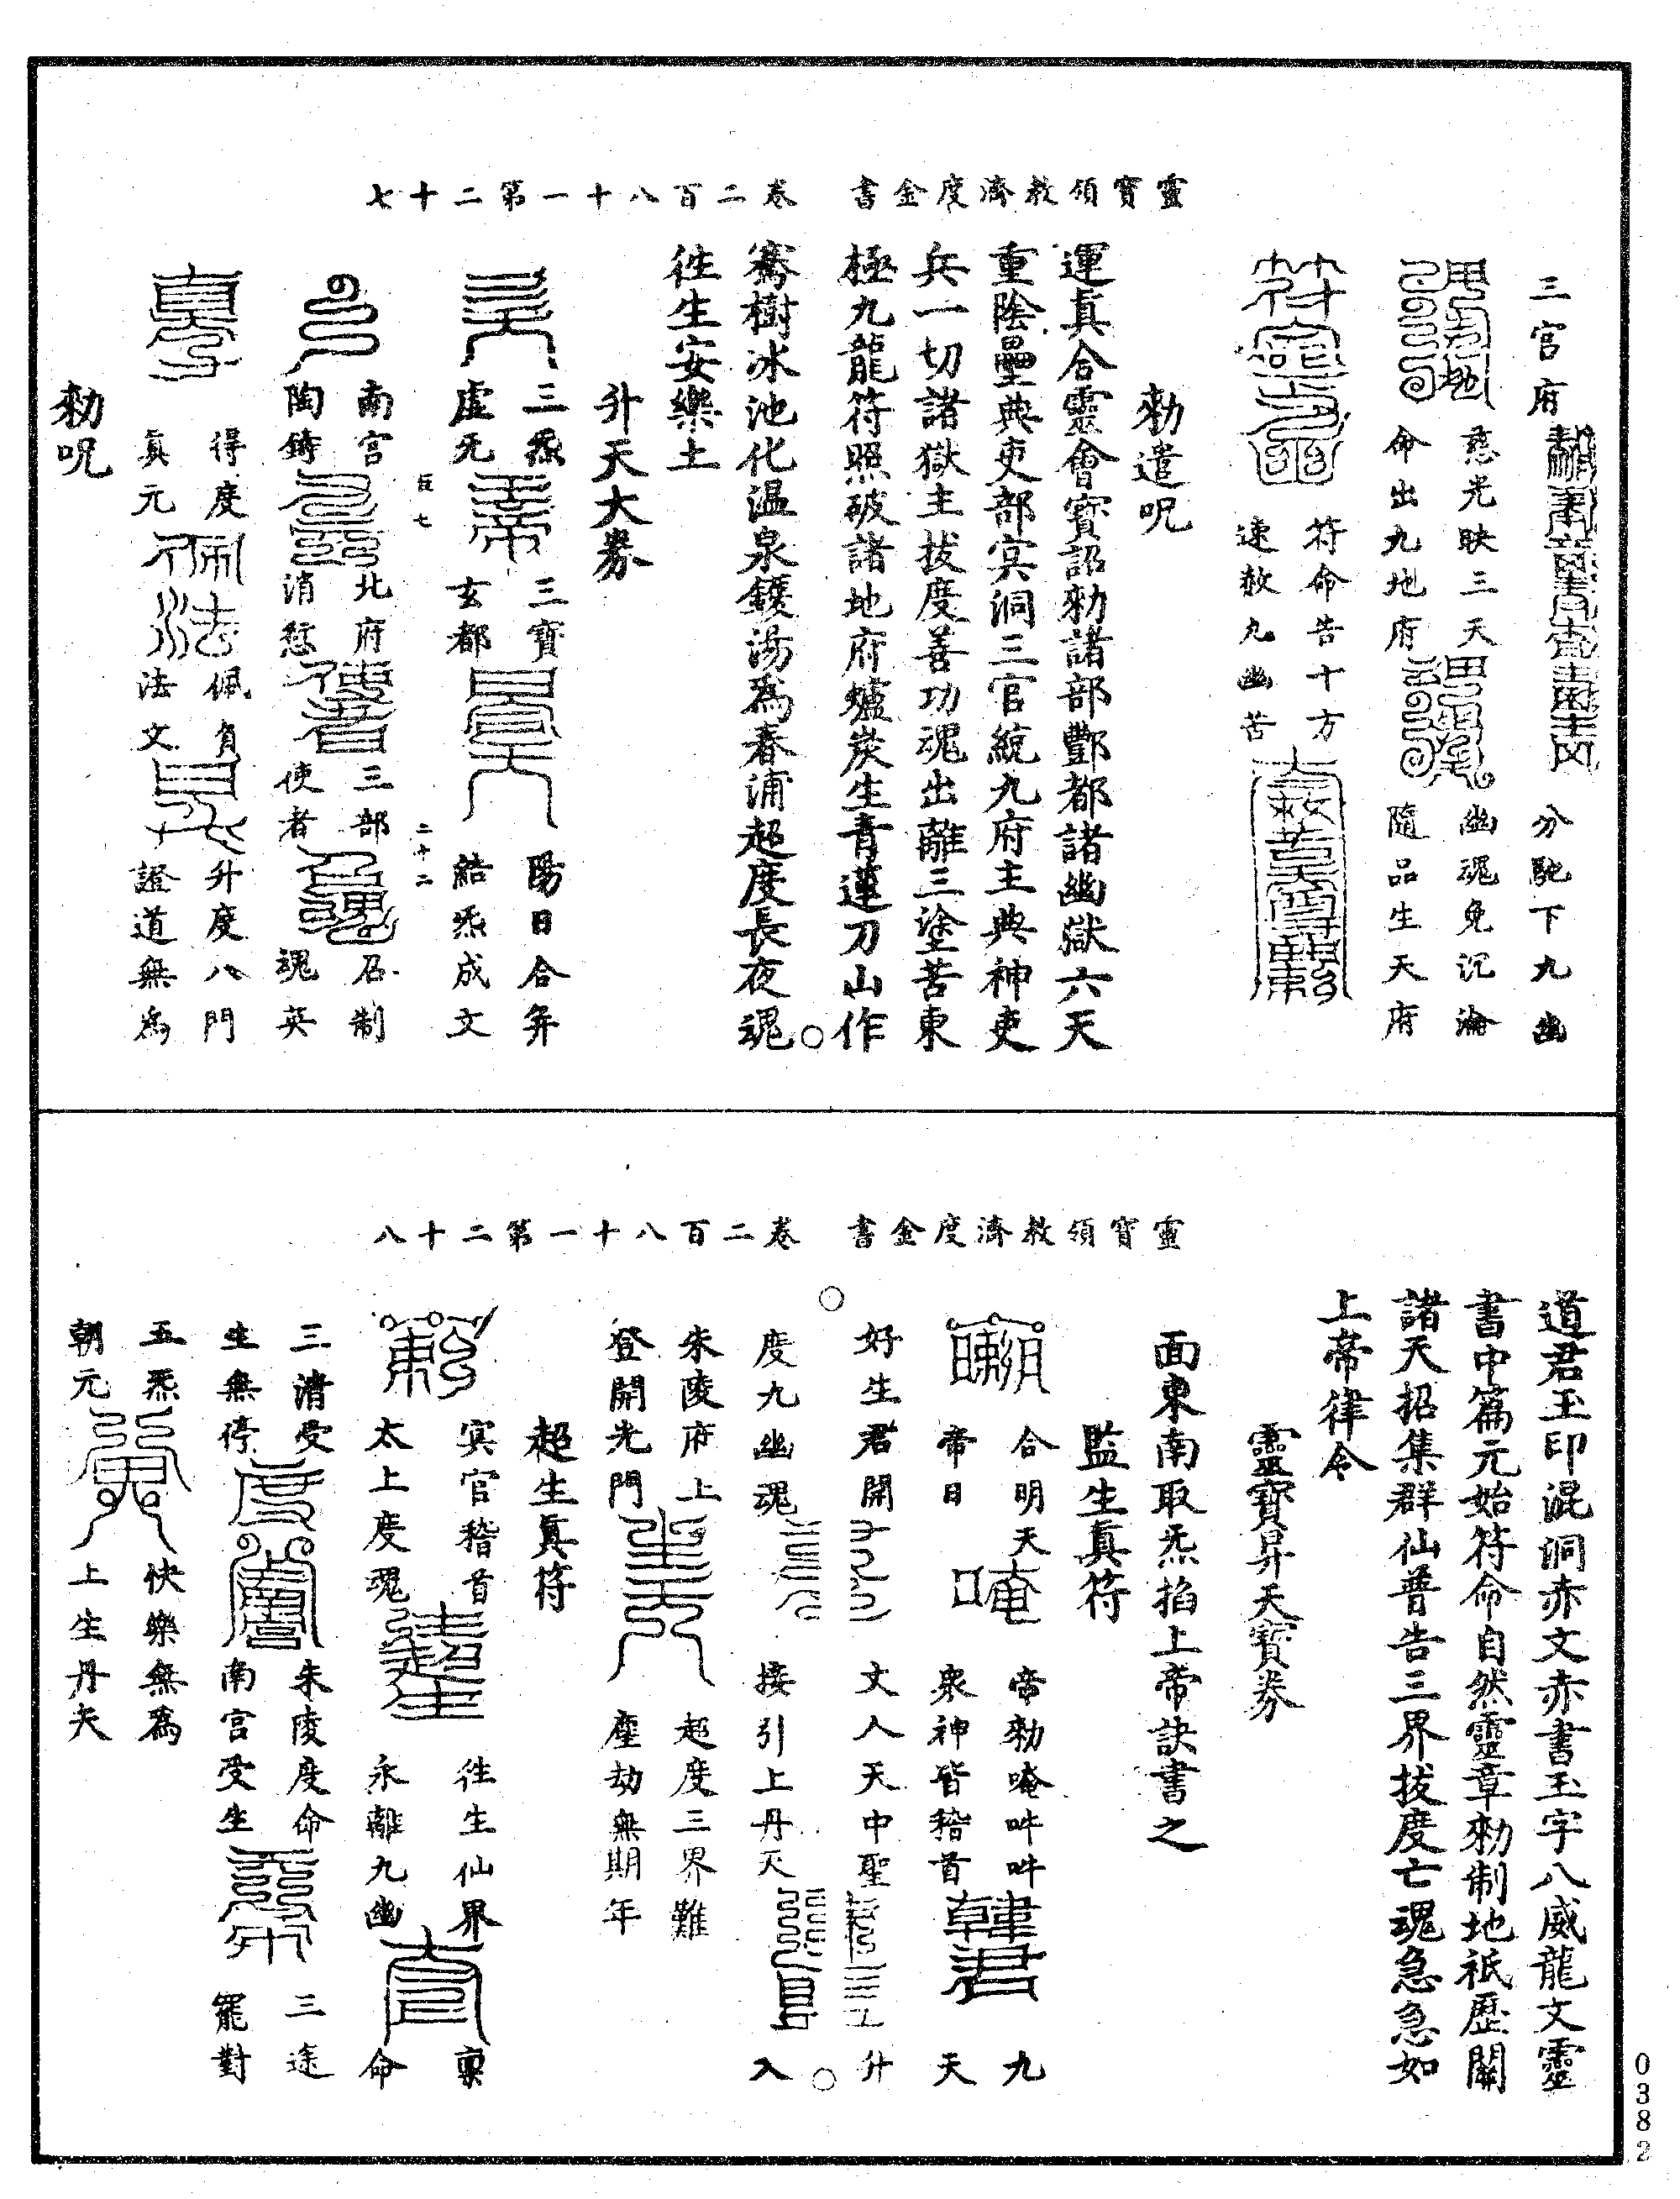 靈寶領教濟度金書　卷二百八十一第二十七
三官府　分馳下九幽
慈光映三天　幽魂免沉淪
命出九地府　隨品生天府
符命告十方
速救九幽苦
勑遣呪
運真合靈會寶詔勑諸部酆都諸幽獄六天
重陰壘典吏部㝠洞三官統九府主典神吏
兵一切諸獄主拔度善功魂出離三塗苦東
極九龍符照破諸地府爐炭生青蓮刀山作
騫樹冰池化温泉鑊湯為春浦超度長夜魂
徃生安樂土
升天大券
三炁　三寶　陽日合并
虛无　玄都　結炁成文
南宫　北府　三部　召制
陶鑄　消愆　使者　魂英
得度　佩負　升度八門
真元　法文　證道無為
勑呪
靈寶領教濟度金書　卷二百八十一第二十八
道君玉印混洞赤文赤書玉字八威龍文靈
書中篇元始符命自然靈章勑制地祇歷關
諸天招集群仙普告三界拔度亡魂急急如
上帝律令
靈寶昇天寶券
面東南取炁掐上帝訣書之
監生真符
合明天　帝勑唵吽吽　九
帝日　衆神皆稽首　天
好生君開　丈人天中聖　升
度九幽魂　接引上丹天　入
朱陵府上　超度三界難
登開光門　塵劫無期年
超生真符
㝠官稽首　徃生仙界　稟
太上度魂　永離九幽　命
三清受　朱陵度命　三途
生無停　南宫受生　罷對
五炁　快樂無為
朝元　上生丹天
0382